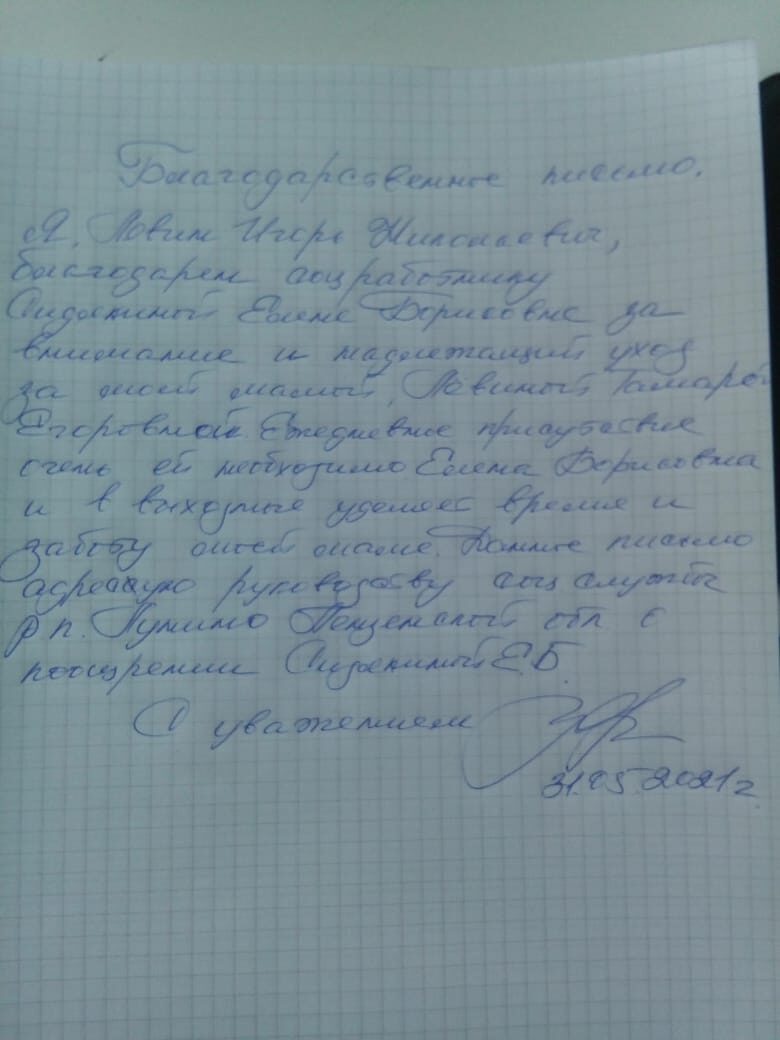 Благодарственное письмо.
Я, Ловин Игорь Николаевич,
благодарен соцработнику
Елене Борисовне за
внимание и надлежащий уход
за моей мамой, Ловиной Тамарой
Егоровной. Ежедневное присутствие
очень ей необходимо Елена Борисовна
и в выходные уделяет время и
заботу моей маме. Данное письмо
адресую руководству соц службы
р п. Лунино Пензенской обл. о
поощрении Е.Б.
С уважением
31.05.2021г